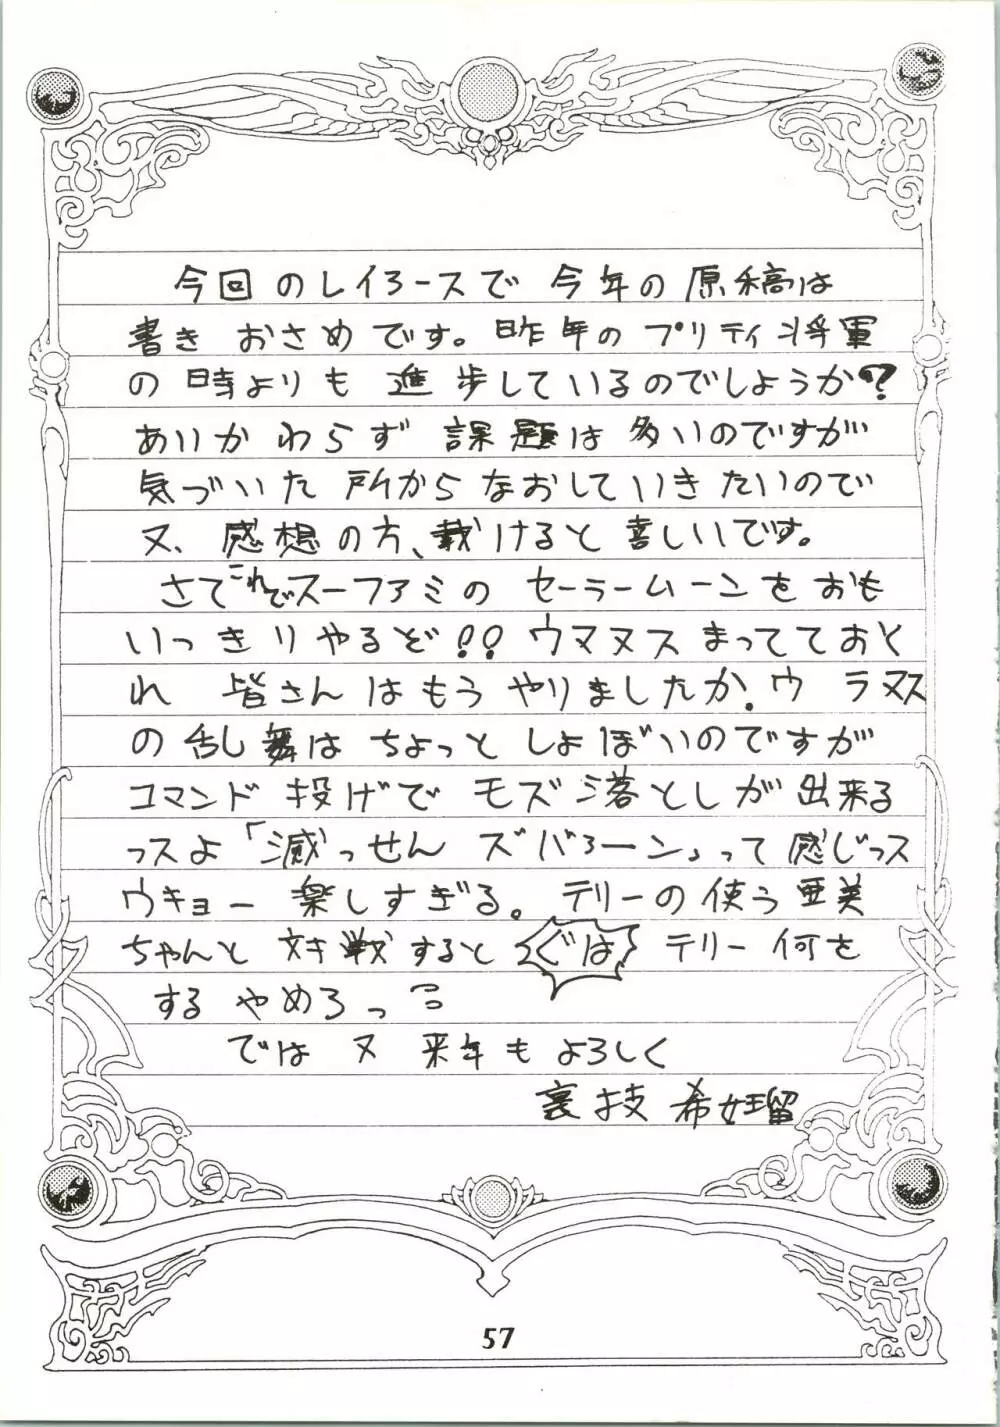 今回のレイアースで 今年の 原稿は
書き おさめです。昨年の プリティ将軍
の 時よりも 進歩しているのでしょうか?
あいかわらず 課題は 多いのですが
気づいた 所から なおしていきたいので
又、感想の方、載けると 喜しいです。
さて これで スーファミの セーラームーンを おも
いっきりやるぞ!! ウマヌス まっててておく
れ 皆さんはもう やりましたか.ウラヌス
の 乱舞は ちょっと しょぼいのですが
コマンド 投げで モズ落としが 出来る
っスよ「滅っせん ズバァーン」って 感じっス
ウキョー 楽しすぎる。テリーの使う 亜美
ちゃんと 対戦すると ぐは テリー 何を
する やめろっ
では 又 来年も よろしく
裏技 希女留
57